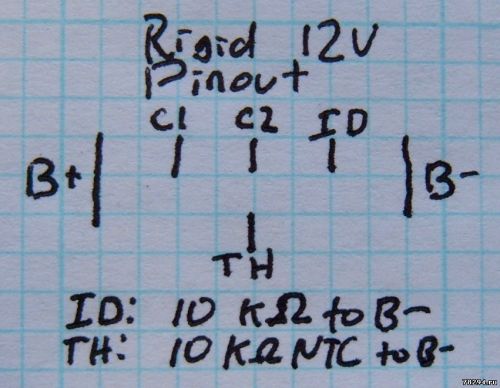 Rigid 12V
Pinout
C1 C2 ID
B+ B-
TH
ID: 10 KΩ to B-
TH: 10 KΩ NTC to B-
78294.ru